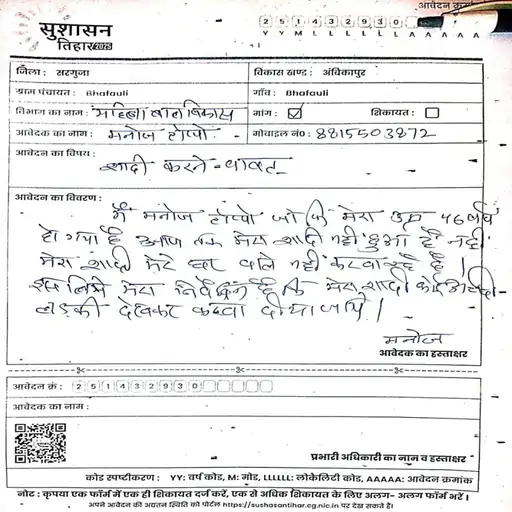 सुशासन
तिहार 2025
आवेदन क्र
2 5 1 4 3 2 9 3 0
Y Y M L L L L L L A A A A A
जिला : सरगुजा
विकास खण्ड : अंबिकापुर
ग्राम पंचायत : Bhafauli
गाँव : Bhafauli
विभाग का नाम : महिला बाल विकास
मांग : ☑ शिकायत : ☐
आवेदक का नाम : मनोज टोप्पो
मोबाइल नं0 : 8815503872
आवेदन का विषय :
शादी करने - बाबत -
आवेदन का विवरण :
मैं मनोज टोप्पो जो कि मेरा उम्र 46 वर्ष
हो गया है आज तक मेरा शादी नहीं हुआ है नहीं
मेरा शादी मेरे घर वाले नहीं करवा रहे है।
इस लिये मेरा निवेदन है कि मेरा शादी कोई
लड़की देखकर करवा दीया जाये।
मनोज
आवेदक का हस्ताक्षर
आवेदन क्रं : 2 5 1 4 3 2 9 3 0
आवेदक का नाम :
प्रभारी अधिकारी का नाम व हस्ताक्षर
कोड स्पष्टीकरण : YY: वर्ष कोड, M: मोड, LLLLLL: लोकेलिटी कोड, AAAAA: आवेदन क्रमांक
नोट : कृपया एक फॉर्म में एक ही शिकायत दर्ज करें, एक से अधिक शिकायत के लिए अलग- अलग फॉर्म भरें ।
अपने आवेदन की अद्यतन स्थिति को पोर्टल https://sushasantihar.cg.nic.in पर देख सकते है।